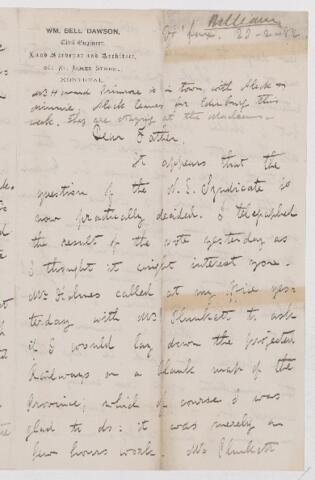 William
WM. BELL DAWSON,
Civil Engineer,
Land Surveyor and Architect,
ST. JAMES STREET,
MONTREAL.
20-2-82
Howard Primrose is in town with Aleck &
Minnie. Aleck leaves for Edinburg this
week. They are staying at the
Dear Father.
It appears that the
question of the N. S. Syndicate is
now practically decided. I telegraphed
the result of the vote yesterday as
I thought it might interest you.
Mr Holmes called at my office yes-
terday with Mr Plunkett to ask
if I would lay down the projected
Railways on a blank map of the
Province; which of course I was
glad to do: it was merely a
few hours work. Mr Plunkett